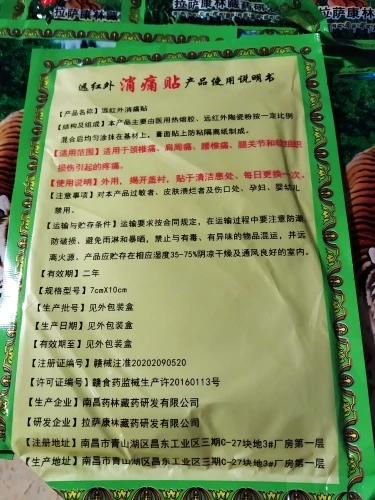 拉萨康林藏药研
拉萨康林藏药
远红外 消痛贴 产品使用说明书
【产品名称】远红外消痛贴
【结构及组成】本产品主要由医用热熔胶、远红外陶瓷粉按一定比例
混合后均匀涂抹在基材上，膏面贴上防粘隔离纸制成。
【适用范围】适用于颈椎痛、肩周痛、腰椎痛、腿关节和软组织
损伤引起的疼痛。
【使用说明】外用，揭开盖衬，贴于清洁患处、每日更换一次。
【注意事项】对本产品过敏者、皮肤溃烂者及伤口处、孕妇、婴幼儿
禁用。
【运输与贮存条件】运输要求按合同规定，在运输过程中要注意防潮
防破损、避免雨淋和暴晒，禁止与有毒、有异味的物品混运，并远
离火源。产品应贮存在相应湿度35-75%阴凉干燥及通风良好的室内。
【有效期】二年
【规格型号】7cmX10cm
【生产批号】见外包装盒
【生产日期】见外包装盒
【有效期至】见外包装盒
【注册证编号】赣械注准20202090520
【许可证编号】赣食药监械生产许20160113号
【生产企业】南昌药林藏药研发有限公司
【研发企业】拉萨康林藏药研发有限公司
【注册地址】南昌市青山湖区昌东工业区三期C-27块地3#厂房第一层
【生产地址】南昌市青山湖区昌东工业区三期C-27块地3#厂房第一层